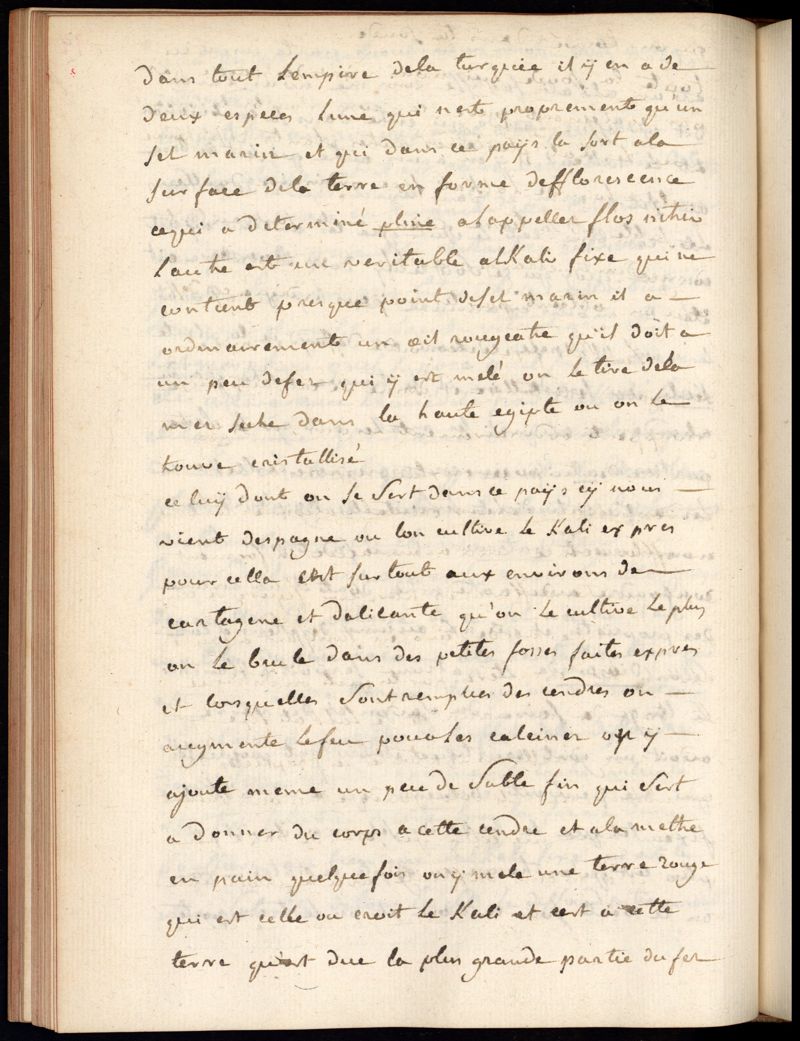 dans tout Lempire dela turquie il ÿ en a de
deux especes Lune qui nest proprement qu'un
sel marin et qui dans ce païs la sort a la
surface dela terre en forme defflorescence
cequi a determiné pline a Lappeller flos nitri
Lautre est un veritable alKali fixe qui ne
contient presque point desel marin il a —
ordinairement un œil rougeatre qu'il doit a
un peu defer qui ÿ est melé on le tire dela
mer seche dans la haute egipte ou on le
trouve cristallisé
celuÿ dont on se sert dans ce païs cÿ nous —
vient despagne ou lon cultive le Kali expres
pour cella cest surtout aux environs de —
cartagene et dalicante qu'on le cultive le plus
on le brule dans des petites fosses faites expres
et lorsquelles sont remplies des cendres on —
augmente lefeu pour les calciner on ÿ —
ajoute meme un peu de sable fin qui sert
a donner du corps a cette cendre et a la mettre
en pain quelquefois on ÿ mele une terre rouge
qui est celle ou croit le Kali et cest a cette
terre qu'est due la plus grande partie du fer